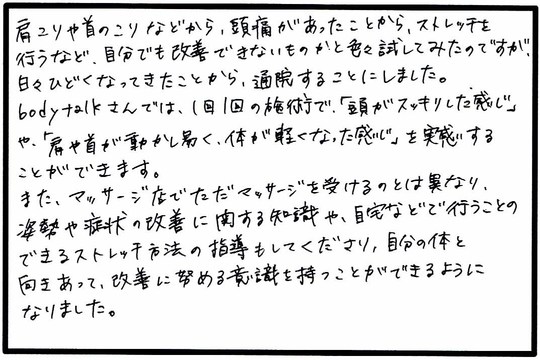 肩コリや首のこりなどから、頭痛があったことから、ストレッチを
行うなど、自分でも改善できないものかと色々試してみたのですが、
日々ひどくなってきたことから、通院することにしました。
bodytalkさんでは、1回1回の施術で、「頭がスッキリした感じ」
や、「肩や首が動かし易く、体が軽くなった感じ」を実感する
ことができます。
また、マッサージ店でただマッサージを受けるのとは異なり、
姿勢や症状の改善に関する知識や、自宅などで行うことの
できるストレッチ方法の指導もしてくださり、自分の体と
向きあって、改善に努める意識を持つことができるように
なりました。